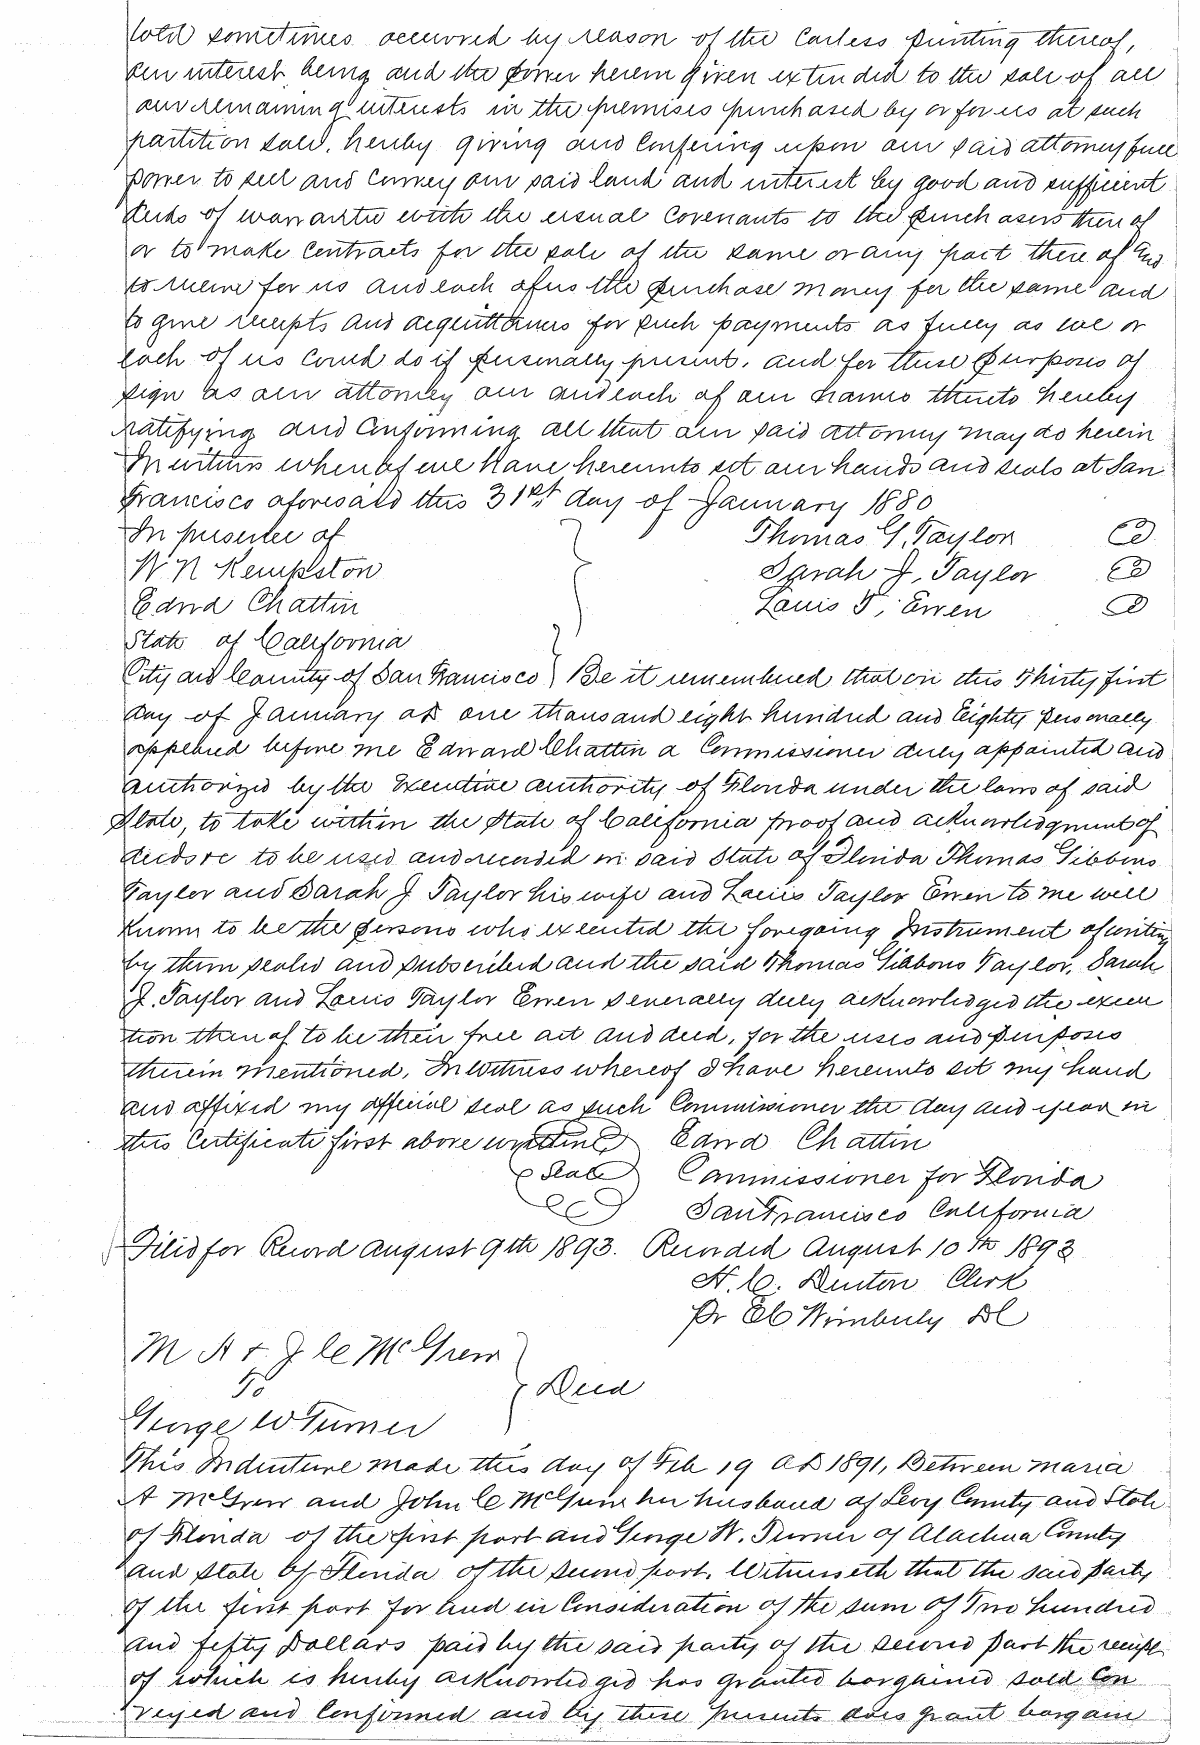 told sometimes occurred by reason of the Carless printing thereof,
our interest being and the power herein given extended to the sale of all
our remaining interests in the premises purchased by or for us at such
partition sale, hereby giving and Confering upon our said attorney full
power to sell and Convey our said land and interest by good and sufficient
deeds of warrantie with the usual Covenants to the purchasers there of
or to make Contracts for the sale of the same or any part there of and
to receive for us and each of us the purchase money for the same and
to give receipts and acquittances for such payments as fully as we or
each of us Could do if personally present, and for these purposes of
sign as our attorney our and each of our names thereto hereby
ratifying and Confirming all that our said attorney may do herein
In witness whereof we have hereunto set our hands and seals at San
Francisco aforesaid this 31st day of January 1880
In presence of Thomas G. Taylor
W N Kempston Sarah J. Taylor
Edwd Chattin Louis T, Ewen
State of California
City and County of San Francisco } Be it remembered that on this Thirty first
day of January AD one thousand eight hundred and Eighty personally
appeared before me Edward Chattin a Commissioner duly appointed and
authorized by the Executive authority of Florida under the laws of said
State, to take within the State of California proof and acknowledgment of
deeds &c to be used and recorded in said State of Florida Thomas Gibbons
Taylor and Sarah J Taylor his wife and Louis Taylor Ewen to me well
known to be the persons who executed the foregoing Instrument of writing
by them sealed and subscribed and the said Thomas Gibbons Taylor, Sarah
J. Taylor and Louis Taylor Ewen severally duly acknowledged the execu
tion thereof to be their free act and deed, for the uses and purposes
therein mentioned, In witness whereof I have hereunto set my hand
and affixed my official seal as such Commissioner the day and year in
this Certificate first above written Edwd Chattin
Seal Commissioner for Florida
San Francisco California
Filed for Record August 9th 1893. Recorded August 10th 1893
H. C. Denton Clerk
Pr E C Wimberly DC
M A & J C McGrew
To } Deed
George W Turner
This Indenture made this day of Feb 19 AD 1891, Between Maria
A McGrew and John C McGrew her husband of Levy County and State
of Florida of the first part and George W. Turner of Alachua County
and State of Florida of the second part, Witnesseth that the said party
of the first part for and in Consideration of the sum of Two hundred
and fifty Dollars paid by the said party of the second part the receipt
of which is hereby acknowledged has granted bargained sold Con
veyed and Confirmed and by these presents does grant bargain